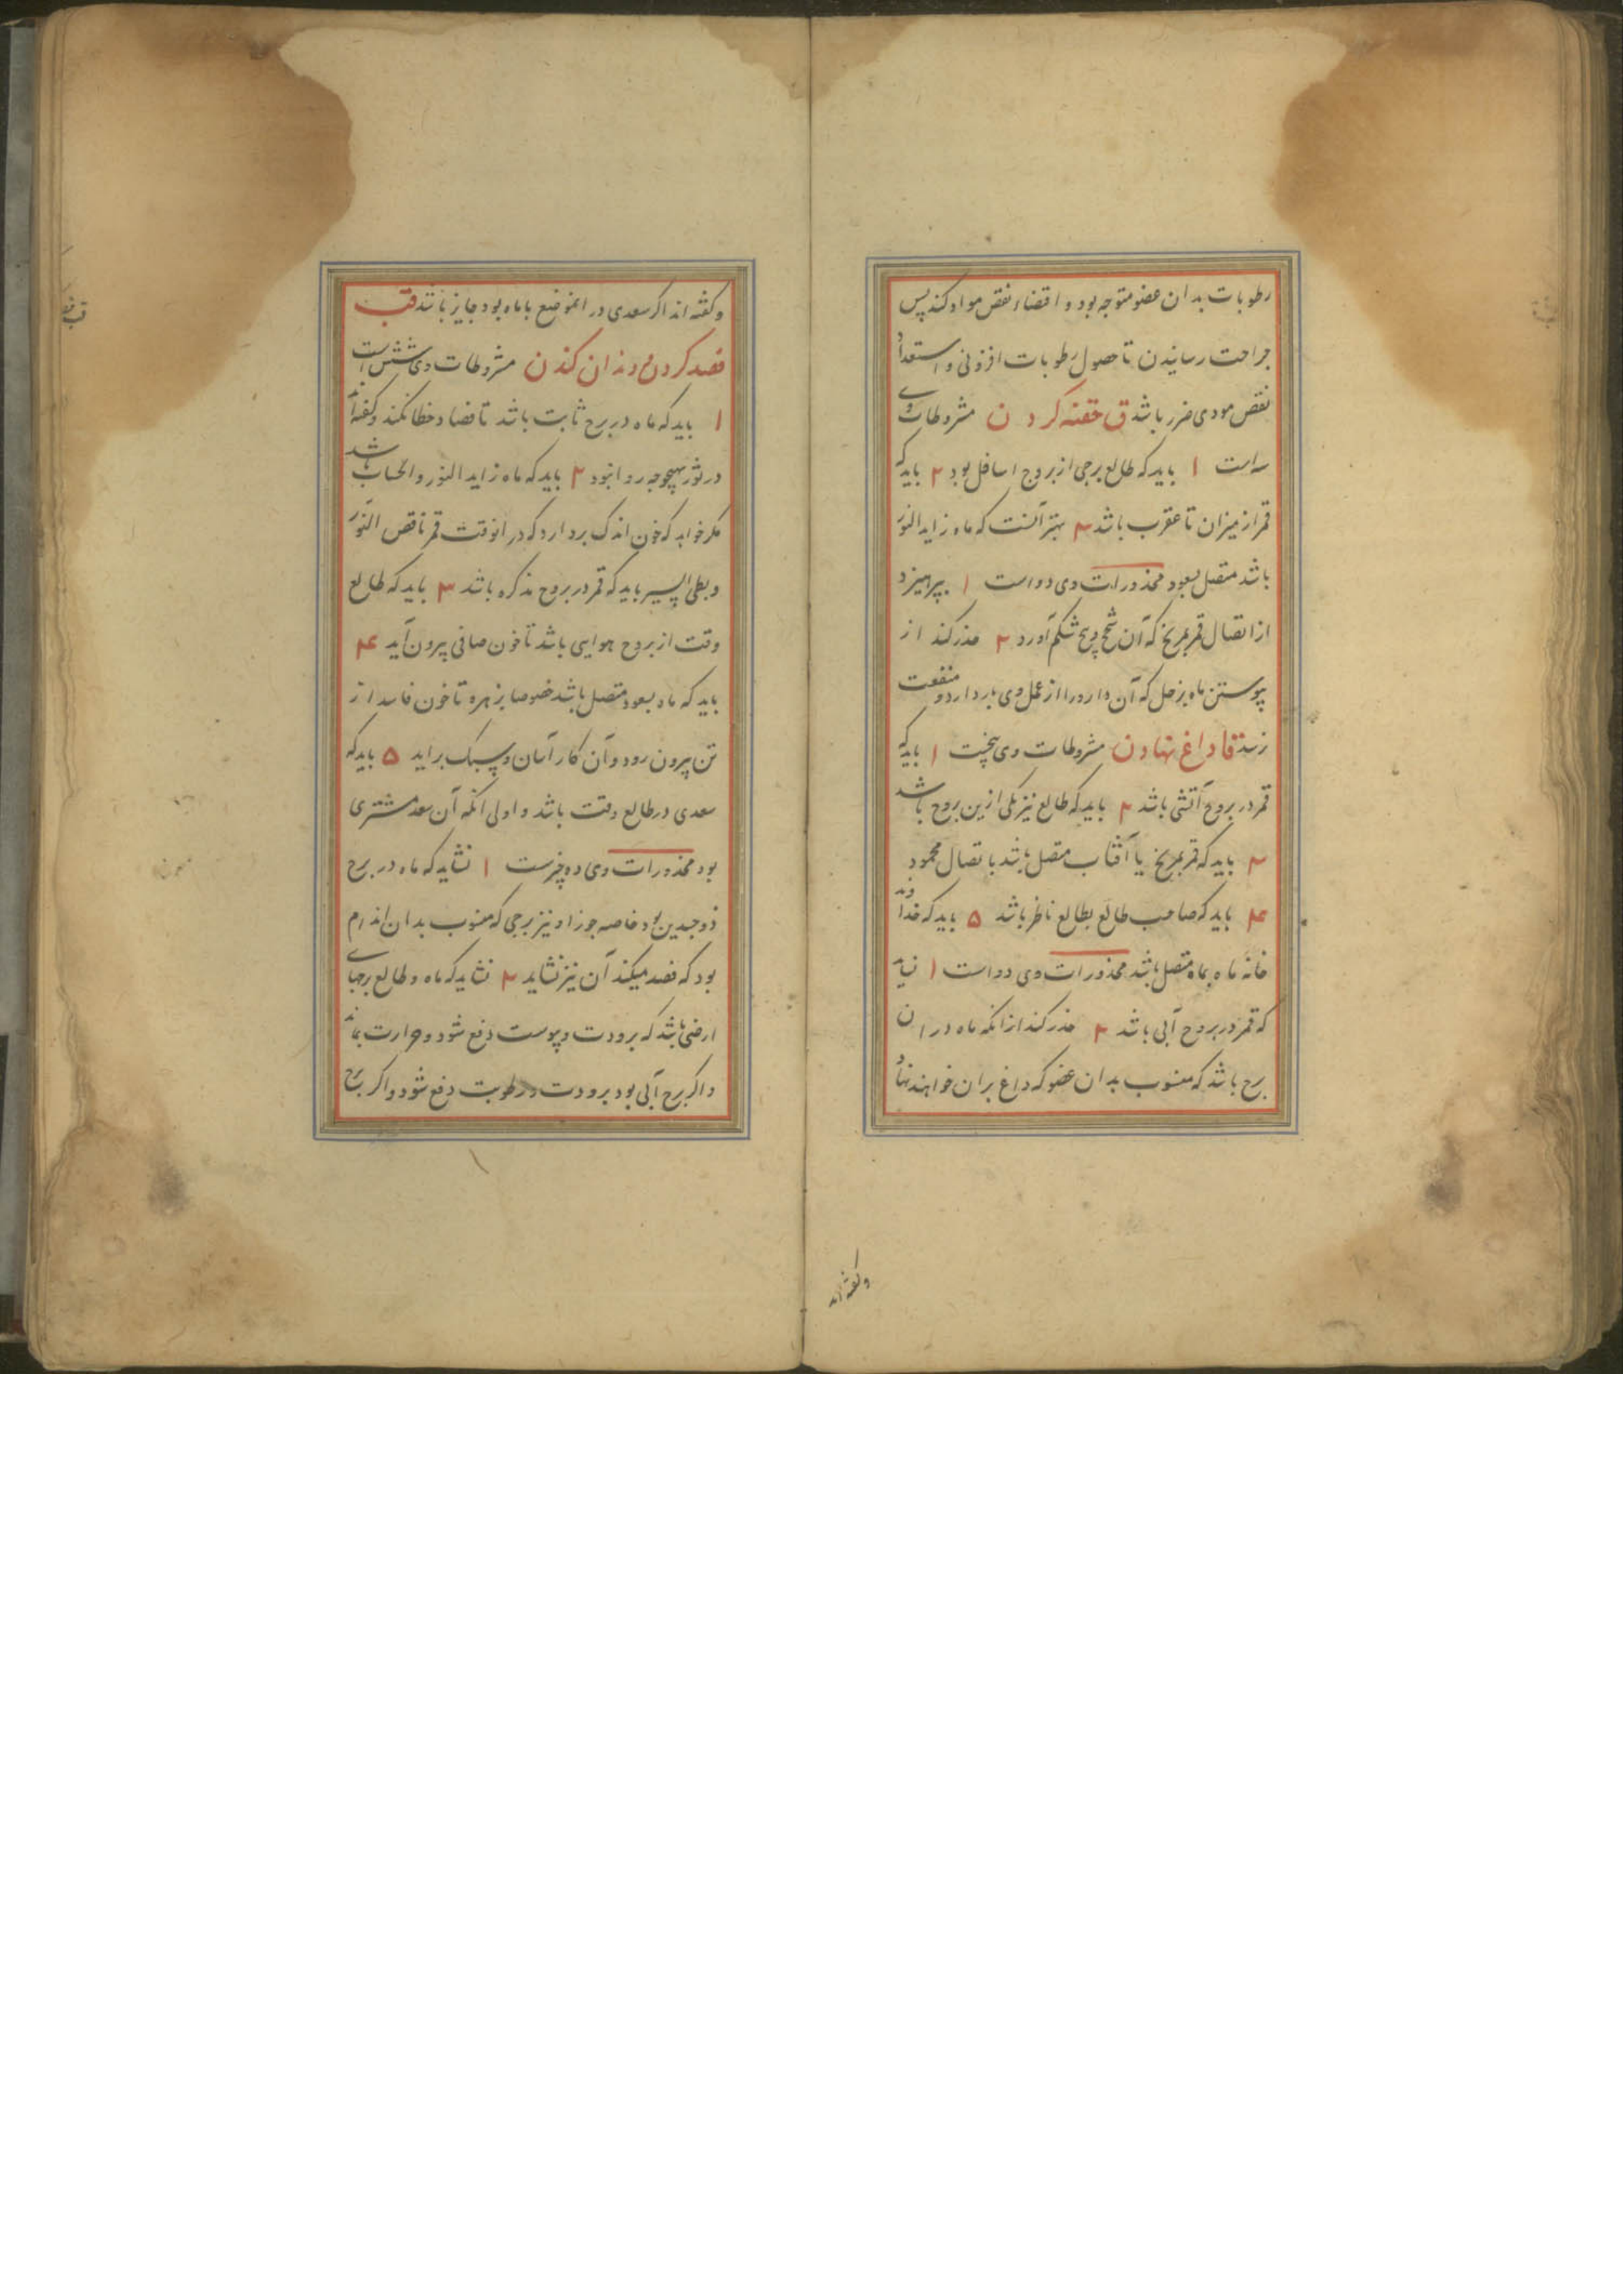 رطوبات بدان عضو متوجه بود و اقتضاء نقص مواد کند پس
جراحت رسانیدن تا حصول رطوبات افزونی و استعداد
نقص مودی ضرر باشد ق حقنه کردن مشروطات وی
سه است ۱ باید که طالع برجی از بروج اسافل بود ۲ باید که
قمر از میزان تا عقرب باشد ۳ بهتر آنست که ماه زاید النور
باشد متصل بسعود محذورات وی دو است ۱ بپرهیزد
از اتصال قمر بمریخ که آن شحج و پیچ شکم آورد ۲ حذر کند از
پیوستن ماه بزحل که آن دارو را از عمل وی باز دارد و منفعت
زسد قا داغ نهادن مشروطات وی پنجست ۱ باید که
قمر در بروج آتشی باشد ۲ باید که طالع نیز یکی ازین بروج باشد
۳ باید که قمر بمریخ یا آفتاب متصل باشد باتصال محمود
۴ باید که صاحب طالع بطالع ناظر باشد ۵ باید که خداوند
خانه ماه بماه متصل باشد محذورات وی دو است ۱ نباید
که قمر در بروج آبی باشد ۲ حذر کند از انکه ماه در ان
برج باشد که منسوب بدان عضو که داغ بران خواهند نهاد
وکفته اند
وکفته اند اکر سعدی در انموضع با ماه بود جایز باشد قب
فصد کردن و دندان کندن مشروطات وی شش است
۱ باید که ماه در برج ثابت باشد تا فصاد خطا نکند وکفته اند
در ثور بهیچوجه روا نبود ۲ باید که ماه زاید النور و الحساب باشد
مکر خواهد که خون اندک بردارد که در انوقت قمر ناقص النور
و بطی السیر باید که قمر در بروج مذکره باشد ۳ باید که طالع
وقت از بروج هوایی باشد تا خون صافی بیرون آید ۴
باید که ماه بسعود متصل باشد خصوصا بزهره تا خون فاسد از
تن بیرون رود و آن کار آسان و سبک براید ۵ باید که
سعدی در طالع وقت باشد و اولی انکه آن سعد مشتری
بود محذورات وی ده چیزست ۱ نشاید که ماه در برج
ذوجسدین بود خاصه جوزا و نیز برجی که منسوب بدان اندام
بود که فصد میکند آن نیز نشاید ۲ نشاید که ماه و طالع برجهای
ارضی باشد که برودت و یبوست دفع شود و حرارت بماند
و اکر برج آبی بود برودت و رطوبت دفع شود و اکر برج